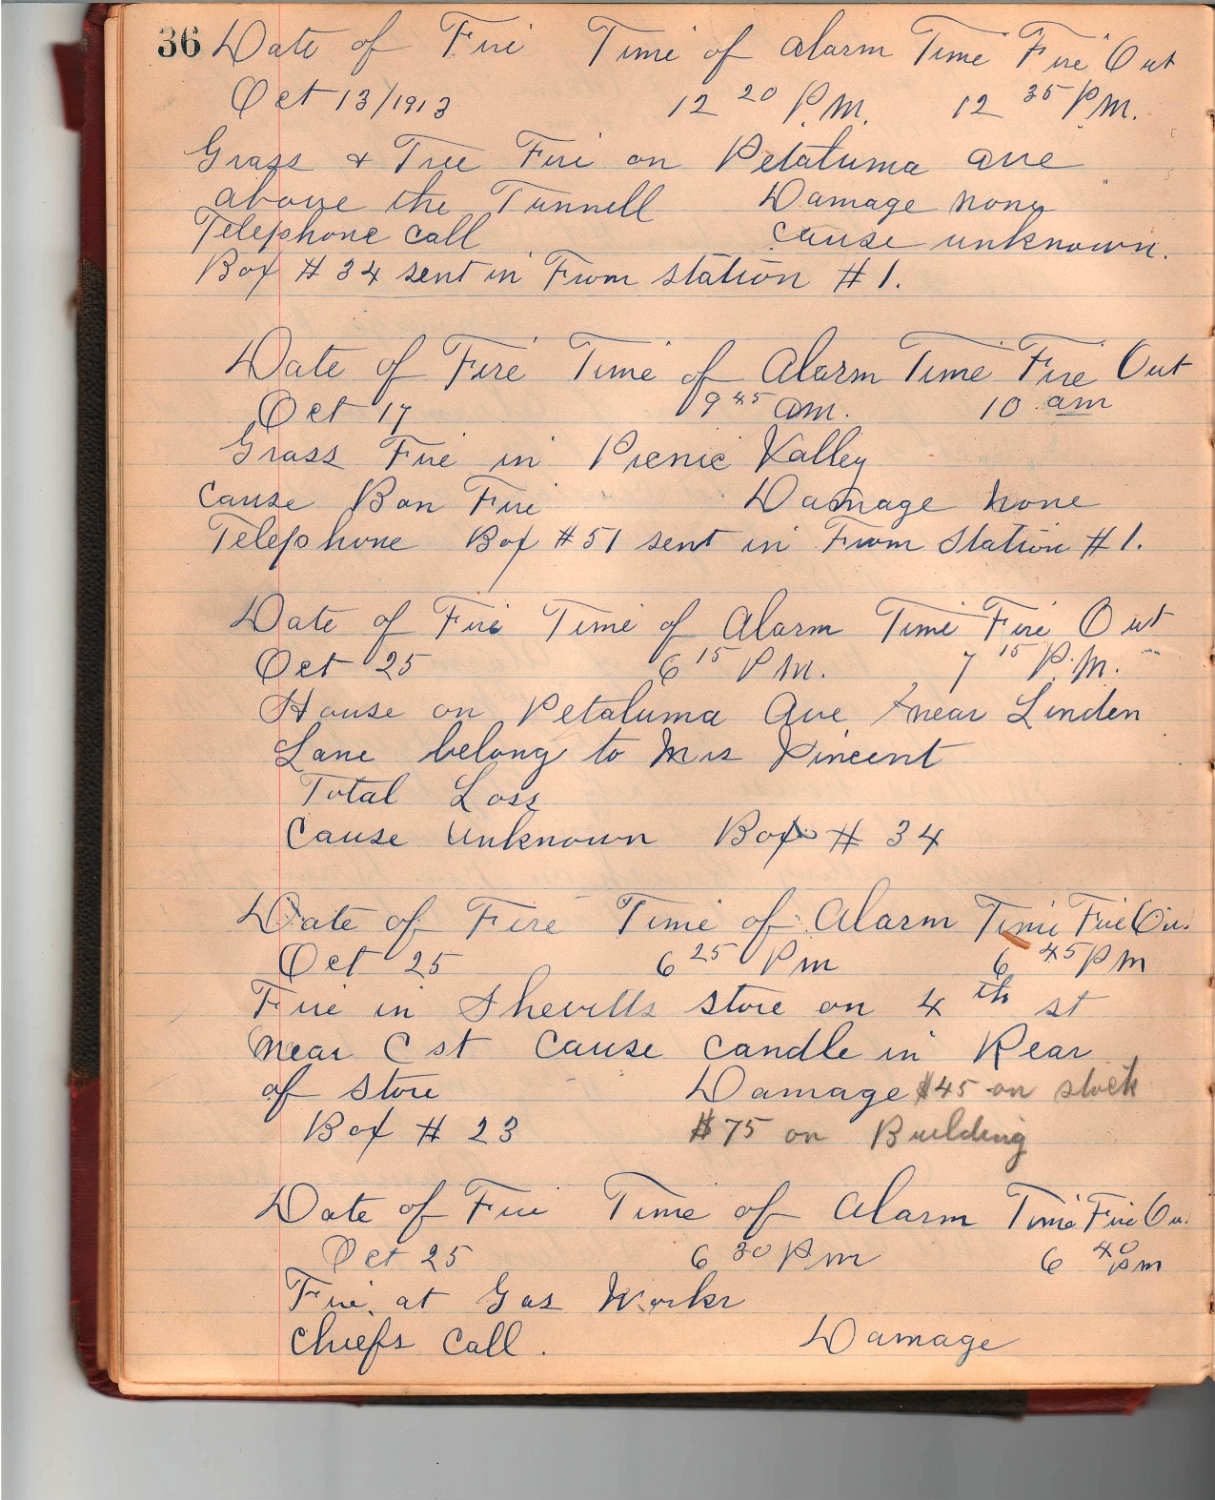 36 Date of Fire Time of alarm Time Fire Out
Oct 13/1913 12 20 P.M. 12 35 P.M.
Grass & Tree Fire on Petaluma ave
above the Tunnell Damage none
Telephone Call cause unknown.
Box # 34 sent in From station # 1.
Date of Fire Time of Alarm Time Fire Out
Oct 17 9 45 am. 10 am
Grass Fire in Picnic Valley
Cause Bon Fire Damage none
Telephone Box # 51 sent in From Station # 1.
Date of Fire Time of Alarm Time Fire Out
Oct 25 6 15 P.M. 7 15 P.M.
House on Petaluma Ave near Linden
Lane belong to Mrs Vincent
Total Loss
Cause Unknown Box # 34
Date of Fire Time of Alarm Time Fire Ou
Oct 25 6 25 Pm 6 45 PM
Fire in store on 4 th st
near C st Cause Candle in Rear
of store Damage $45 on stock
Box # 23 $75 on Building
Date of Fire Time of Alarm Time Fire Ou
Oct 25 6 30 Pm 6 40 pm
Fire at Gas Works
Chiefs Call. Damage